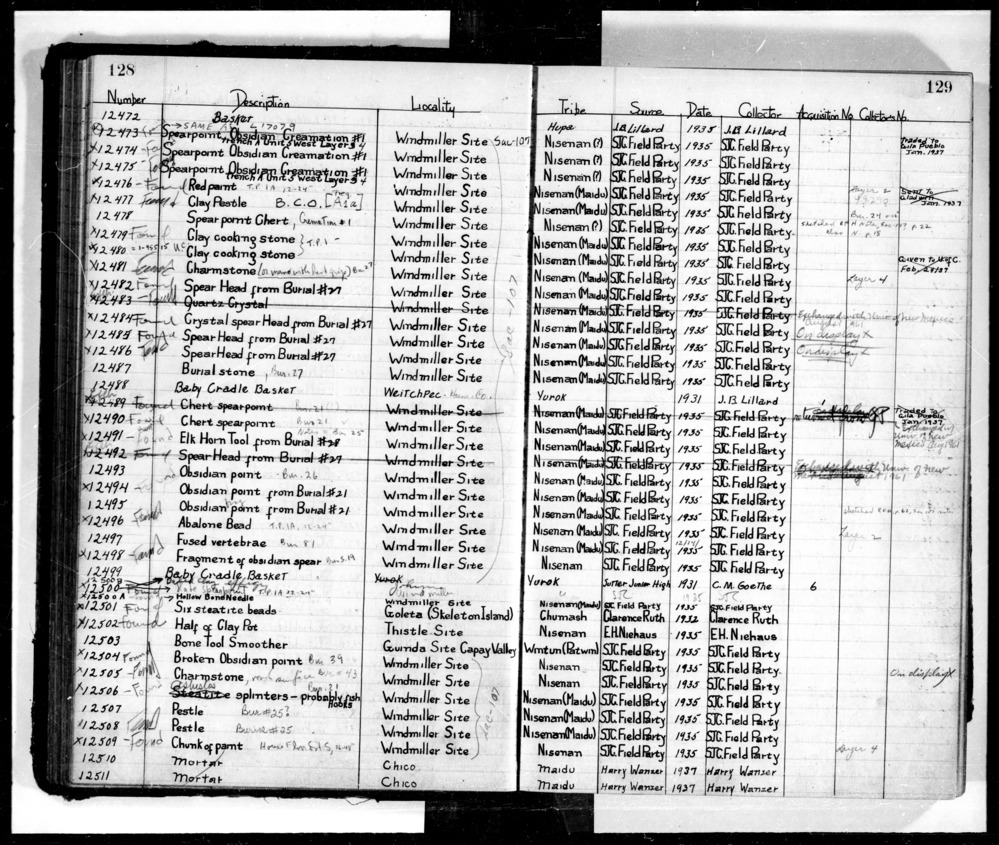 128
129
Number Description Locality Tribe Source Date Collector Acquisition No. Collectors No.
12472 Basket Hupa J.B. Lillard 1935 J.B. Lillard
SAME AS L 17079
12473 Spearpoint, Obsidian Creamation #1 Windmiller Site Sac-107 Nisenan (?) S.J.C. Field Party 1935 S.J.C. Field Party Traded to Gila Pueblo Jan. 1937
Trench A Unit 5 West Layer 4
12474 Spearpoint Obsidian Creamation #1 Windmiller Site Nisenan (?) S.J.C. Field Party 1935 S.J.C. Field Party
12475 Spearpoint Obsidian Creamation #1 Windmiller Site Nisenan (?) S.J.C. Field Party 1935 S.J.C. Field Party
Trench A Unit 5 West Layer 4
12476 - Found Red paint T.P. 1A 12-24" Windmiller Site Nisenan (Maidu) S.J.C. Field Party 1935 S.J.C. Field Party Layer 2 Sent to Gladwin Jan. 1937
12477 Found Clay Pestle B.C.O. [A1a] Windmiller Site Nisenan (Maidu) S.J.C. Field Party 1935 S.J.C. Field Party
12478 Spearpoint Chert, Cremation #1 Windmiller Site Nisenan (?) S.J.C. Field Party 1935 S.J.C. Field Party
12479 Found Clay cooking stone T.P. 1 Windmiller Site Nisenan (Maidu) S.J.C. Field Party 1935 S.J.C. Field Party
12480 Clay cooking stone Windmiller Site Nisenan (Maidu) S.J.C. Field Party 1935 S.J.C. Field Party Given to U. of C. Feb. 28/37
12481 Found Charmstone Bur 27 Windmiller Site Nisenan (Maidu) S.J.C. Field Party 1935 S.J.C. Field Party Layer 4
12482 Found Spear Head from Burial #27 Windmiller Site Nisenan (Maidu) S.J.C. Field Party 1935 S.J.C. Field Party
12483 - Found Quartz Crystal Windmiller Site Nisenan (Maidu) S.J.C. Field Party 1935 S.J.C. Field Party Exchanged with Univ of New Mexico August 1961
12484 Found Crystal spear Head from Burial #27 Windmiller Site Nisenan (Maidu) S.J.C. Field Party 1935 S.J.C. Field Party On display X
12485 Found Spear Head from Burial #27 Windmiller Site Nisenan (Maidu) S.J.C. Field Party 1935 S.J.C. Field Party On display
12486 - Found Spear Head from Burial #27 Windmiller Site Nisenan (Maidu) S.J.C. Field Party 1935 S.J.C. Field Party
12487 Burial stone Bur. 27 Windmiller Site Nisenan (Maidu) S.J.C. Field Party 1935 S.J.C. Field Party
12488 Baby Cradle Basket Weitchpec Yurok 1931 J.B. Lillard
12489 Found Chert spearpoint Bur. 21 Windmiller Site Nisenan (Maidu) S.J.C. Field Party 1935 S.J.C. Field Party Traded to Gila Pueblo Jan. 1937
12490 Found Chert spearpoint Bur 21 Windmiller Site Nisenan (Maidu) S.J.C. Field Party 1935 S.J.C. Field Party
12491 - Found Elk Horn Tool from Burial #28 Windmiller Site Nisenan (Maidu) S.J.C. Field Party 1935 S.J.C. Field Party
12492 - Found Spear Head from Burial #27 Windmiller Site Nisenan (Maidu) S.J.C. Field Party 1935 S.J.C. Field Party
12493 Obsidian point Bur. 26 Windmiller Site Nisenan (Maidu) S.J.C. Field Party 1935 S.J.C. Field Party
12494 Obsidian point from Burial #21 Windmiller Site Nisenan (Maidu) S.J.C. Field Party 1935 S.J.C. Field Party
12495 Obsidian point from Burial #21 Windmiller Site Nisenan (Maidu) S.J.C. Field Party 1935 S.J.C. Field Party
12496 Found Abalone Bead T.P. 1A, 12-24" Windmiller Site Nisenan (Maidu) S.J.C. Field Party 1935 S.J.C. Field Party Layer 2
12497 Fused vertebrae Bur 81 Windmiller Site Nisenan (Maidu) S.J.C. Field Party 1935 S.J.C. Field Party
12498 - Found Fragment of obsidian spear Windmiller Site Nisenan S.J.C. Field Party 1935 S.J.C. Field Party
12499 Baby Cradle Basket Yurok Yurok Sutter Junior High 1931 C.M. Goethe 6
12500 Windmiller SJC 1935 SJC
12500 A Hollow Bone Needle Windmiller Site Nisenan (Maidu) S.J.C. Field Party 1935 S.J.C. Field Party
12501 Found Six steatite beads Goleta (Skeleton Island) Chumash Clarence Ruth 1932 Clarence Ruth
12502 Found Half of Clay Pot Thistle Site Nisenan E.H. Niehaus 1935 E.H. Niehaus
12503 Bone Tool Smoother Guinda Site Capay Valley Wintun (Patwin) S.J.C. Field Party 1935 S.J.C. Field Party
12504 Found Broken Obsidian point Bur 39 Windmiller Site Nisenan S.J.C. Field Party 1935 S.J.C. Field Party
12505 - Found Charmstone, Bur # 43 Windmiller Site Nisenan S.J.C. Field Party 1935 S.J.C. Field Party On display X
12506 - Found Steatite Asbestos splinters - probably fish hooks Windmiller Site Nisenan (Maidu) S.J.C. Field Party 1935 S.J.C. Field Party
12507 Pestle Bur #25? Windmiller Site Nisenan (Maidu) S.J.C. Field Party 1935 S.J.C. Field Party
12508 Found Pestle Burial #25 Windmiller Site Nisenan (Maidu) S.J.C. Field Party 1935 S.J.C. Field Party
12509 - Found Chunk of paint Windmiller Site Nisenan S.J.C. Field Party 1935 S.J.C. Field Party Layer 4
12510 Mortar Chico Maidu Harry Wanzer 1937 Harry Wanzer
12511 Mortar Chico Maidu Harry Wanzer 1937 Harry Wanzer
Sac-107
Sac-107